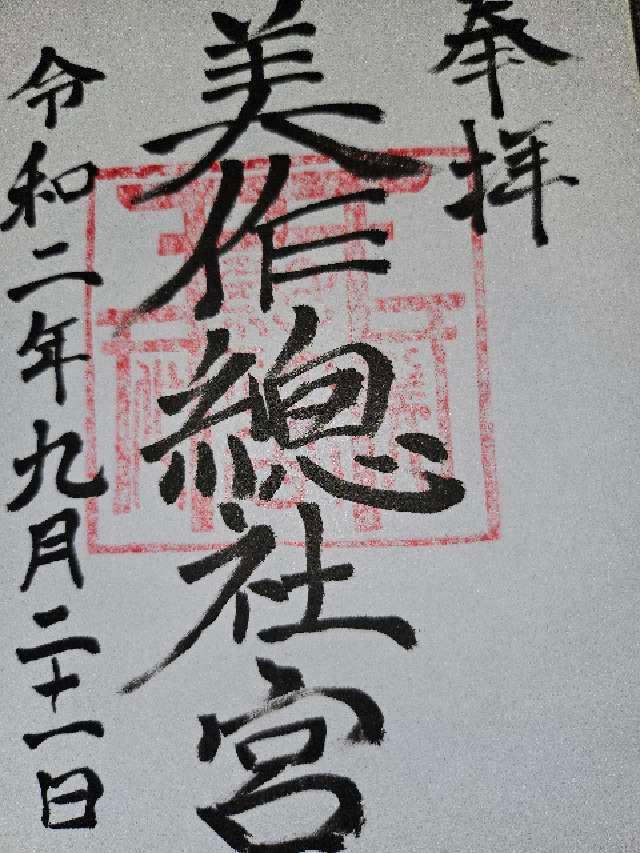 奉拝
美作總社宮
令和二年九月二十一日